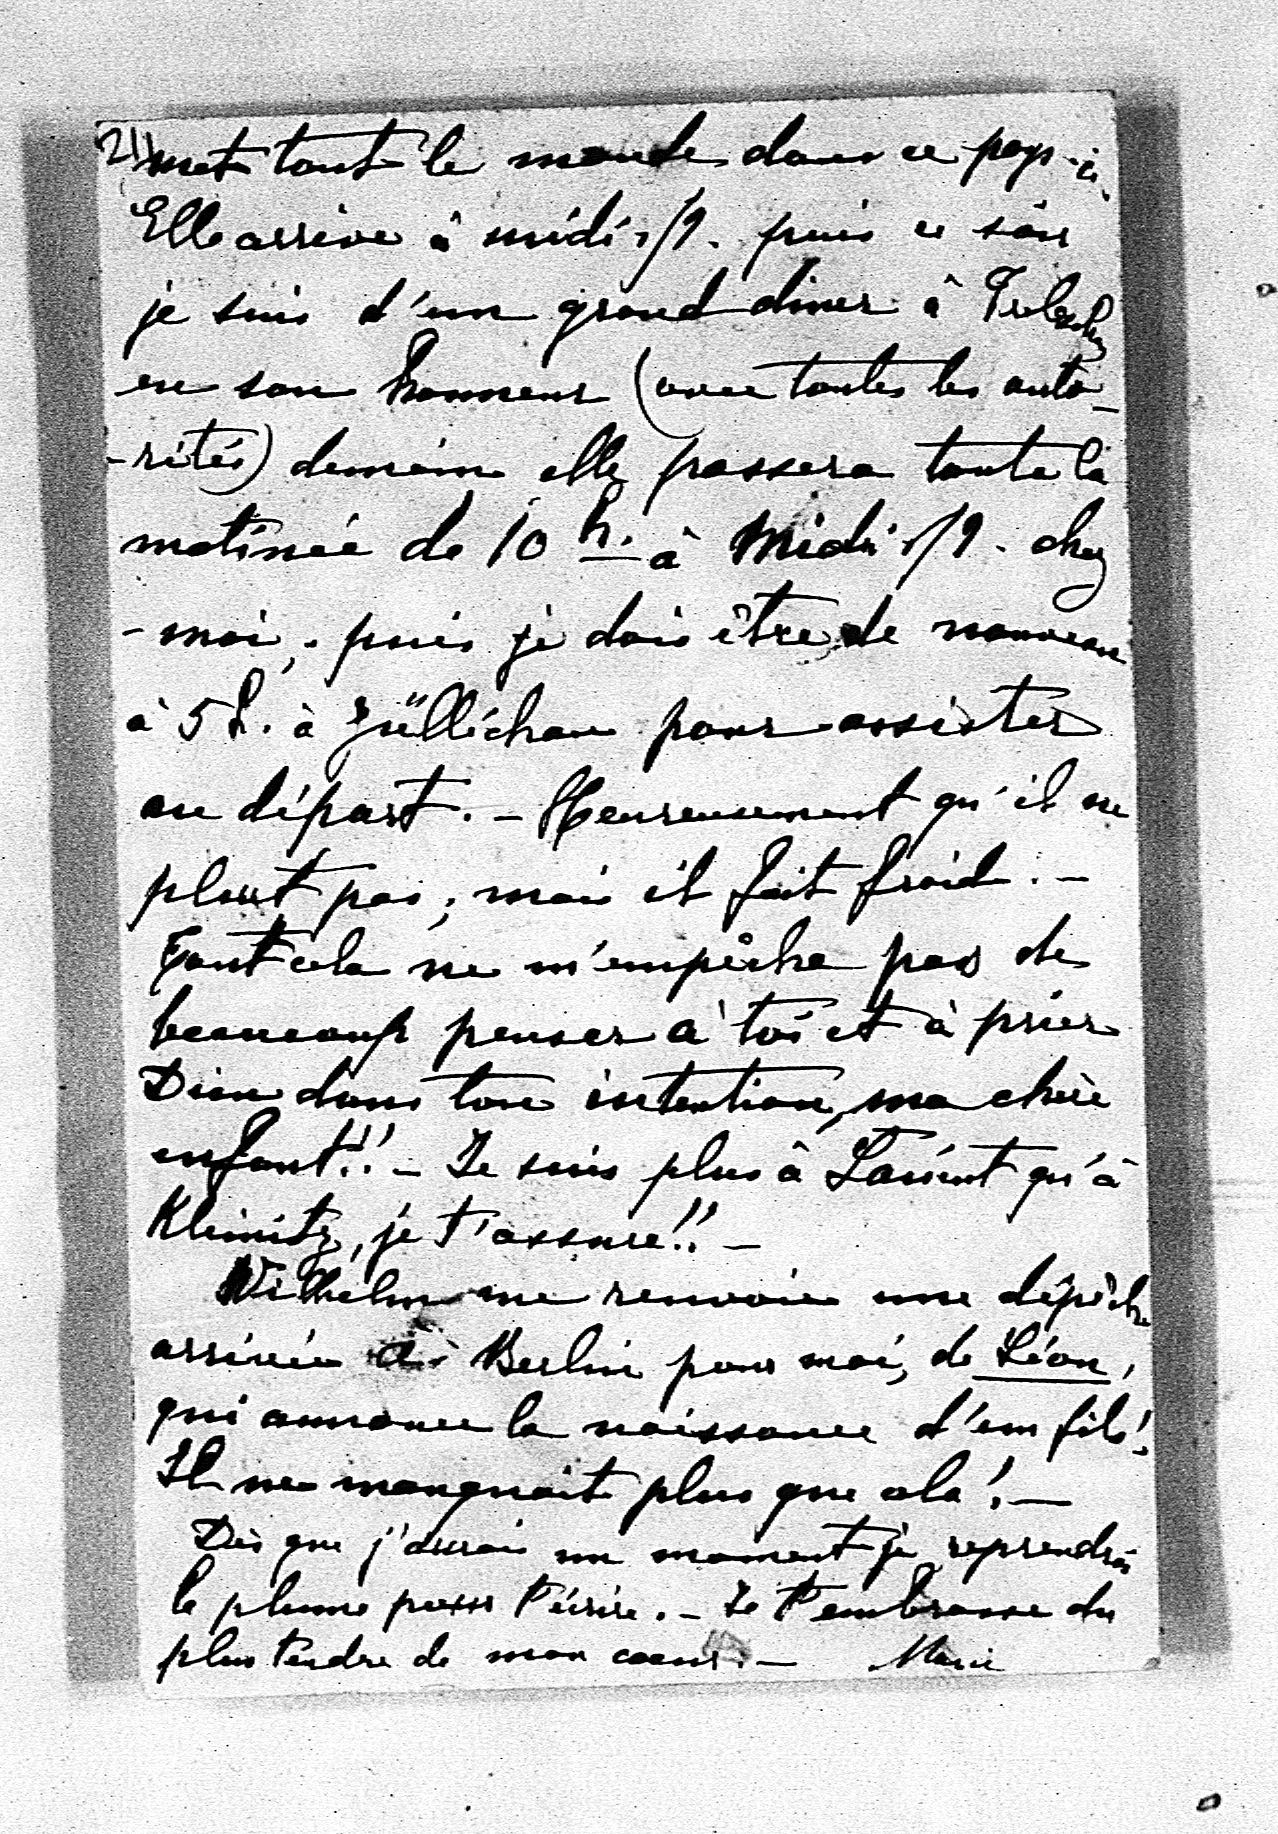 2) met tout le monde dans ce pays-ci.
Elle arrive à midi 1/2. puis ce soir
je suis d'un grand diner à
en son honneur (avec toutes les auto-
-rités) demain elle passera toute la
matinée de 10 h. à Midi 1/2. chez
-moi, puis je dois être de nouveau
à 5 h. à Züllichau pour assister
au départ. - Heureusement qu'il ne
pleut pas, mais il fait froid. -
Tout cela ne m'empêche pas de
beaucoup penser à toi et à prier
Dieu dans ton intention, ma chère
enfant!! - Je suis plus à qu'à
Kleinitz, je t'assure!! -
Wilhelm me renvoie une dépêche
arrivée à Berlin pour moi, de Léon,
qui annonce la naissance d'un fils!
Il ne manquait plus que cela! -
Dès que j'aurai un moment je reprendrai
la plume pour t'écrire. - Je t'embrasse du
plus tendre de mon coeur. - Marie